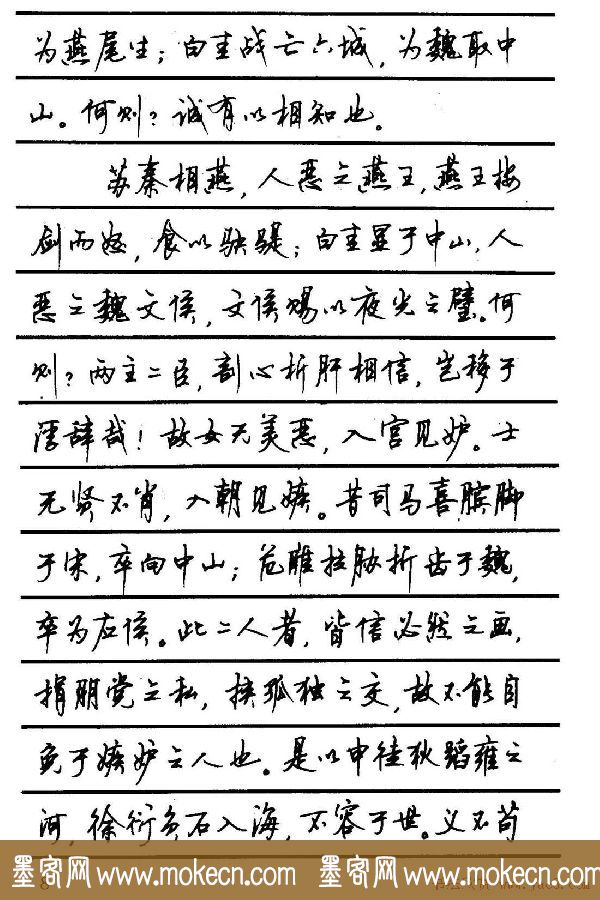 为燕尾生；白圭战亡六城，为魏取中
山。何则？诚有以相知也。
苏秦相燕，人恶之燕王，燕王按
剑而怒，食以駃騠；白圭显于中山，人
恶之魏文侯，文侯赐以夜光之璧。何
则？两主二臣，剖心析肝相信，岂移于
浮辞哉！故女无美恶，入宫见妒。士
无贤不肖，入朝见嫉。昔司马喜膑脚
于宋，卒向中山；范雎拉胁折齿于魏，
卒为应侯。此二人者，皆信必然之画，
捐朋党之私，挟孤独之交，故不能自
免于嫉妒之人也。是以申徒狄蹈雍之
河，徐衍负石入海，不容于世。义不苟
墨客网 www.mokecn.com 墨客网 www.mokecn.com